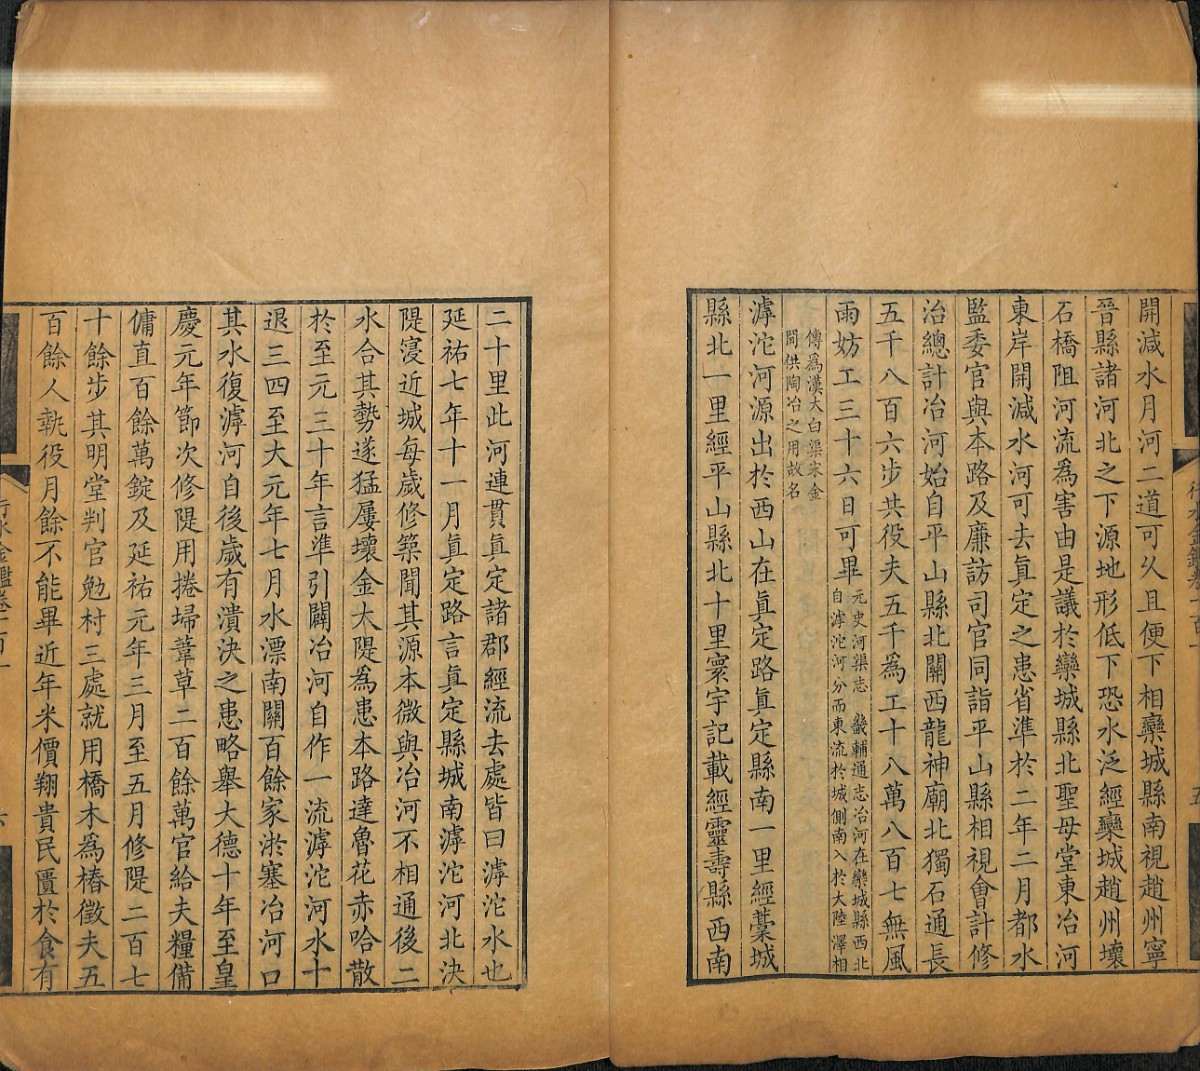 開減水月河二道可久且便下相欒城縣南視趙州寧
晉縣諸河北之下源地形低下恐水泛經欒城趙州壞
石橋阻河流為害由是議於欒城縣北聖母堂東冶河
東岸開減水河可去眞定之患省準於二年二月都水
監委官與本路及廉訪司官同詣平山縣相視會計修
治總計冶河始自平山縣北關西龍神廟北獨石通長
五千八百六步共役夫五千為工十八萬八百七無風
雨妨工三十六日可畢
元史河渠志 畿輔通志冶河在欒城縣西北
自滹沱河分而東流於城側南入於大陸澤相
傳為漢大白渠宋金
間供陶冶之用故名
滹沱河源出於西山在眞定路眞定縣南一里經藁城
縣北一里經平山縣北十里寰宇記載經靈壽縣西南
二十里此河連貫眞定諸郡經流去處皆曰滹沱水也
延祐七年十一月眞定路言眞定縣城南滹沱河北決
隄寖近城每歲修築聞其源本微與冶河不相通後二
水合其勢遂猛屢壞金大隄為患本路達魯花赤哈散
於至元三十年言準引闢冶河自作一流滹沱河水十
退三四至大元年七月水漂南關百餘家淤塞冶河口
其水復滹河自後歲有潰決之患略舉大德十年至皇
慶元年節次修隄用捲埽葦草二百餘萬官給夫糧備
傭直百餘萬錠及延祐元年三月至五月修隄二百七
十餘步其明堂判官勉村三處就用橋木為樁徵夫五
百餘人執役月餘不能畢近年米價翔貴民匱於食有